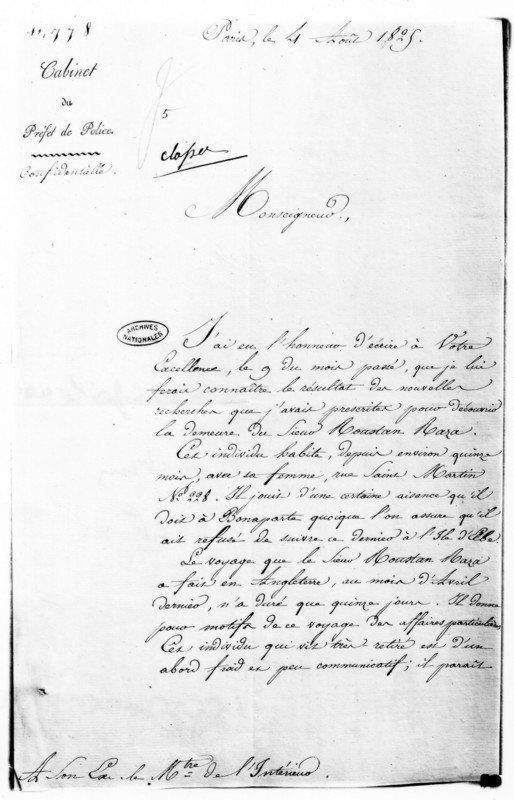 N.° 778
Paris, le 4 Août 1825.
Cabinet
du
Préfet de Police.
Confidentielle.
5
Monseigneur,
ARCHIVES
NATIONALES
J'ai eu l'honneur d'écrire à Votre
Excellence, le 9 du mois passé, que je lui
ferais connaître le résultat des nouvelles
recherches que j'avais prescrites pour découvrir
la demeure du Sieur Roustan Raza.
Cet individu habite, depuis environ quinze
mois, avec sa femme, rue Saint Martin
N.° 228. Il jouit d'une certaine aisance qu'il
doit à Bonaparte quoique l'on assure qu'il
ait refusé de suivre ce dernier à l'Ile d'Elbe.
Le voyage que le Sieur Roustan Raza
a fait en Angleterre, au mois d'Avril
dernier, n'a duré que quinze jours. Il donne
pour motifs de ce voyage des affaires particulières
Cet individu qui vit très retiré est d'un
abord froid et peu communicatif; il paraît
A Son Exc. le Mtre de l'Intérieur.